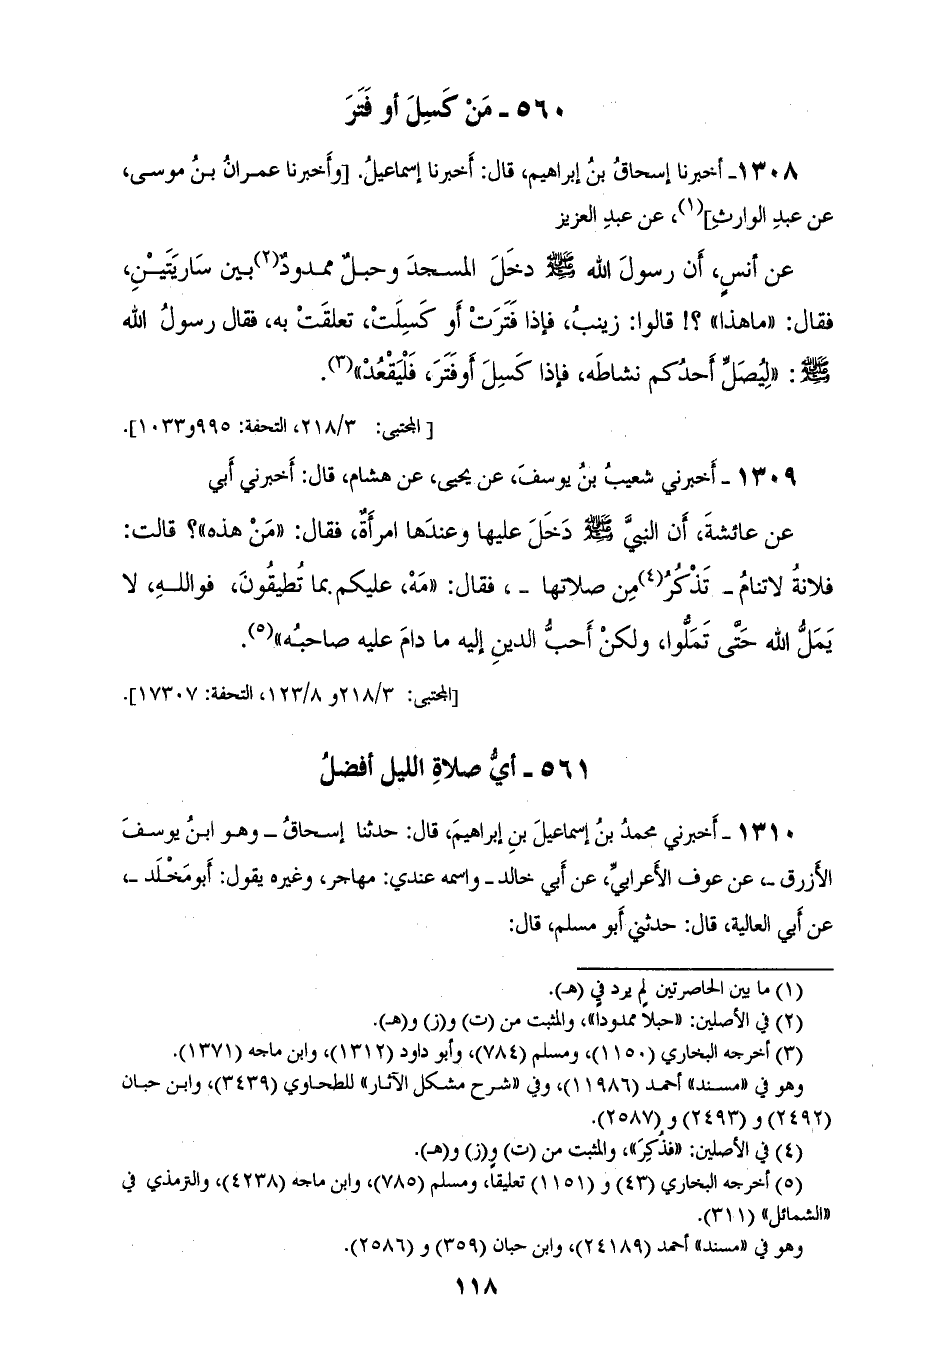 ٥٦٠ - مَنْ كَسِلَ أو فَتَرَ
١٣٠٨- أخبرنا إسحاقُ بنُ إبراهيم، قال: أَخبرنا إسماعيلُ. [وأَخبرنا عمرانُ بنُ موسى،
عن عبدِ الوارثِ](١)، عن عبدِ العزيز
عن أنسٍ، أَن رسولَ الله ﷺ دخلَ المسجدَ وحبلٌ ممدودٌ(٢) بين سَاريَتَيْنِ،
فقال: «ماهذا» ؟! قالوا: زينبُ، فإذا فَتَرَتْ أَو كَسِلَتْ، تعلقَتْ به، فقال رسولُ الله
ﷺ: «لِيُصَلِّ أَحدُكم نشاطَه، فإذا كَسِلَ أَوفَتَرَ، فَلْيَقْعُدْ»(٣).
[ المجتبى: ٢١٨/٣، التحفة: ٩٩٥و١٠٣٣].
١٣٠٩ - أَخبرني شعيبُ بنُ يوسفَ، عن يحيى، عن هشام، قال: أَخبرني أَبي
عن عائشةَ، أَن النبيَّ ﷺ دَخَلَ عليها وعندَها امرأَةٌ، فقال: «مَنْ هذه»؟ قالت:
فلانةُ لاتنامُ - تَذْكُرُ(٤) مِن صلاتها - ، فقال: «مَهْ، عليكم بما تُطيقُونَ، فواللهِ، لا
يَمَلُّ الله حَتَّى تَمَلُّوا، ولكنْ أَحبُّ الدينِ إليه ما دامَ عليه صاحبُه»(٥).
[المجتبى: ٢١٨/٣و ١٢٣/٨، التحفة: ١٧٣٠٧].
٥٦١ - أيُّ صلاةِ الليل أفضلُ
١٣١٠ - أَخبرني محمدُ بنُ إسماعيلَ بنِ إبراهيمَ، قال: حدثنا إسحاقُ - وهو ابنُ يوسفَ
الأزرق -، عن عوف الأعرابيِّ، عن أبي خالد - واسمه عندي: مهاجر، وغيره يقول: أَبومَخْلَد -،
عن أَبي العالية، قال: حدثني أَبو مسلم، قال:
(١) ما بين الحاصرتين لم يرد في (هـ).
(٢) في الأصلين: «حبلاً ممدوداً»، والمثبت من (ت) و(ز) و(هـ).
(٣) أخرجه البخاري (١١٥٠)، ومسلم (٧٨٤)، وأبو داود (١٣١٢)، وابن ماجه (١٣٧١).
وهو في «مسند» أحمد (١١٩٨٦)، وفي «شرح مشكل الآثار» للطحاوي (٣٤٣٩)، وابن حبان
(٢٤٩٢) و (٢٤٩٣) و (٢٥٨٧).
(٤) في الأصلين: «فذُكِرَ»، والمثبت من (ت) و(ز) و(هـ).
(٥) أخرجه البخاري (٤٣) و (١١٥١) تعليقاً، ومسلم (٧٨٥)، وابن ماجه (٤٢٣٨)، والترمذي في
«الشمائل» (٣١١).
وهو في «مسند» أحمد (٢٤١٨٩)، وابن حبان (٣٥٩) و (٢٥٨٦).
١١٨